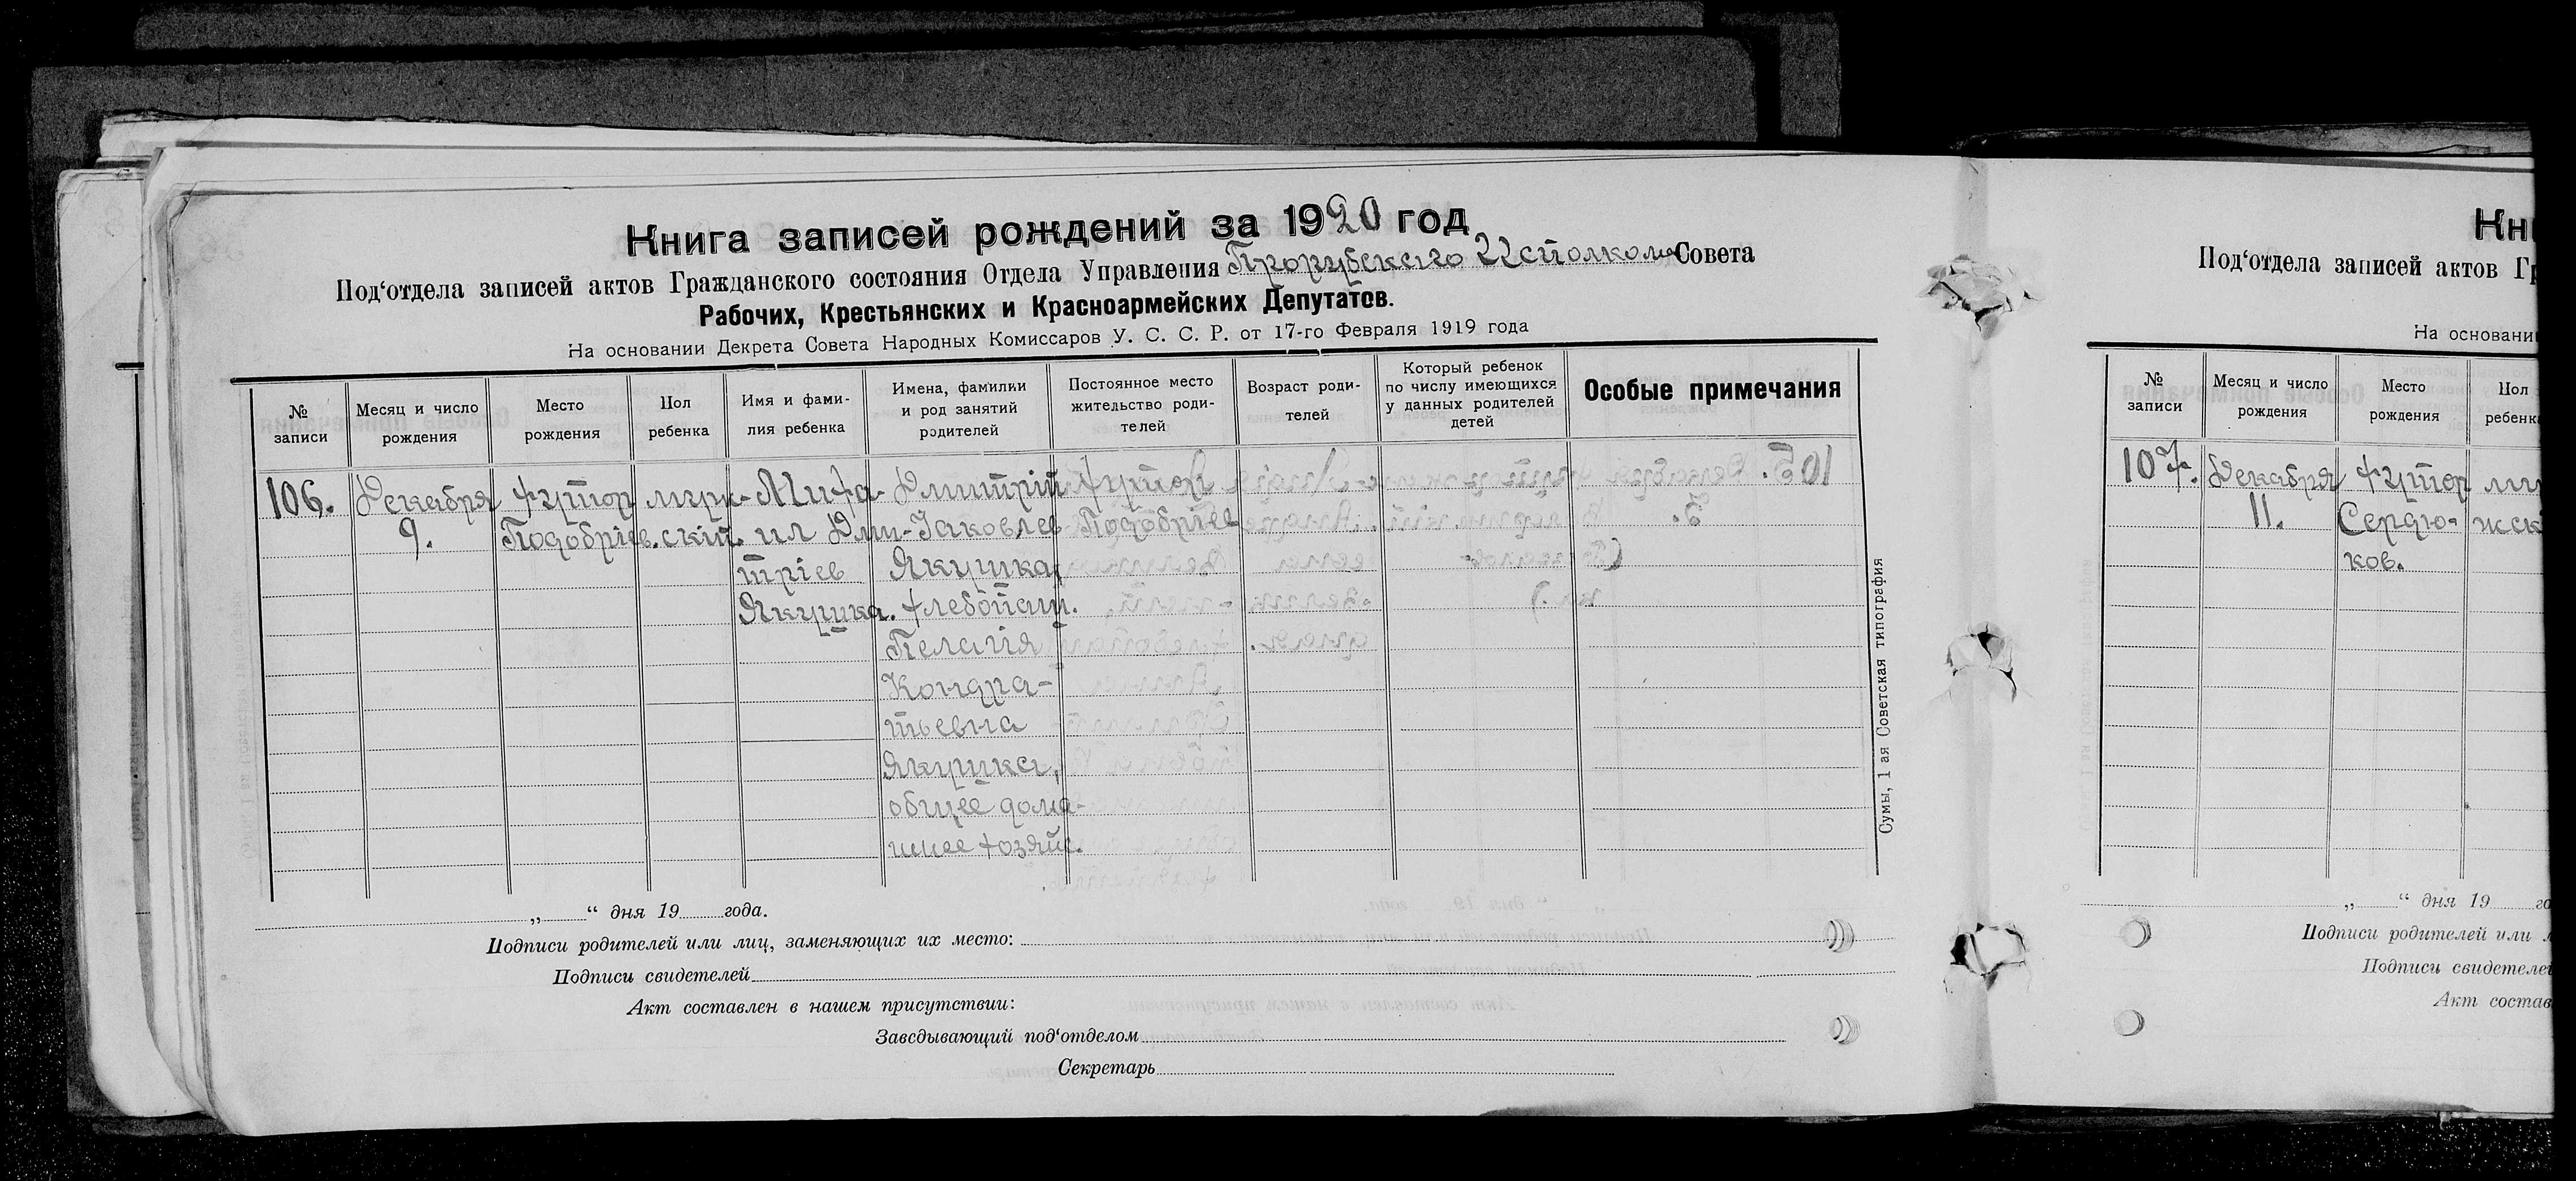 Книга записей рождений за 1920 год
Под‘отдела записей актов Гражданского состояния Отдела Управления Прорубского Исполкома Совета
Рабочих, Крестьянских и Красноармейских Депутатов.
На основании Декрета Совета Народных Комиссаров У. С. С. Р. от 17-го Февраля 1919 года
№ записи
Месяц и число рождения
Место рождения
Пол ребенка
Имя и фами-
лия ребенка
Имена, фамилии
и род занятий
родителей
Постоянное место
жительство роди-
телей
Возраст роди-
телей
Который ребенок
по числу имеющихся
у данных родителей
детей
Особые примечания
106.
Декабря
9.
Хутор
Подобріев.
муж-
ский.
Миха-
ил Дми-
тріев
Якушка.
Дмитрій
Яковлев
Якушка,
хлебопаш.
Пелагія
Кондра-
тьевна
Якушка,
общее дома-
шнее хозяйс.
Хутор
Подобріев
Сумы, 1 ая Советская типография
„ “ дня 19 года.
Подписи родителей или лиц, заменяющих их место:
Подписи свидетелей
Акт составлен в нашем присутствии:
Заведывающий под‘отделом
Секретарь
Кни
Под‘отдела записей актов Гр
На основании
№ записи
Месяц и число
рождения
Место
рождения
Пол
ребенк
107.
Декабря
11.
Хутор
Сердю-
ков.
му
жск
„ “ дня 19 го
Подписи родителей или л
Подписи свидетелей
Акт состав